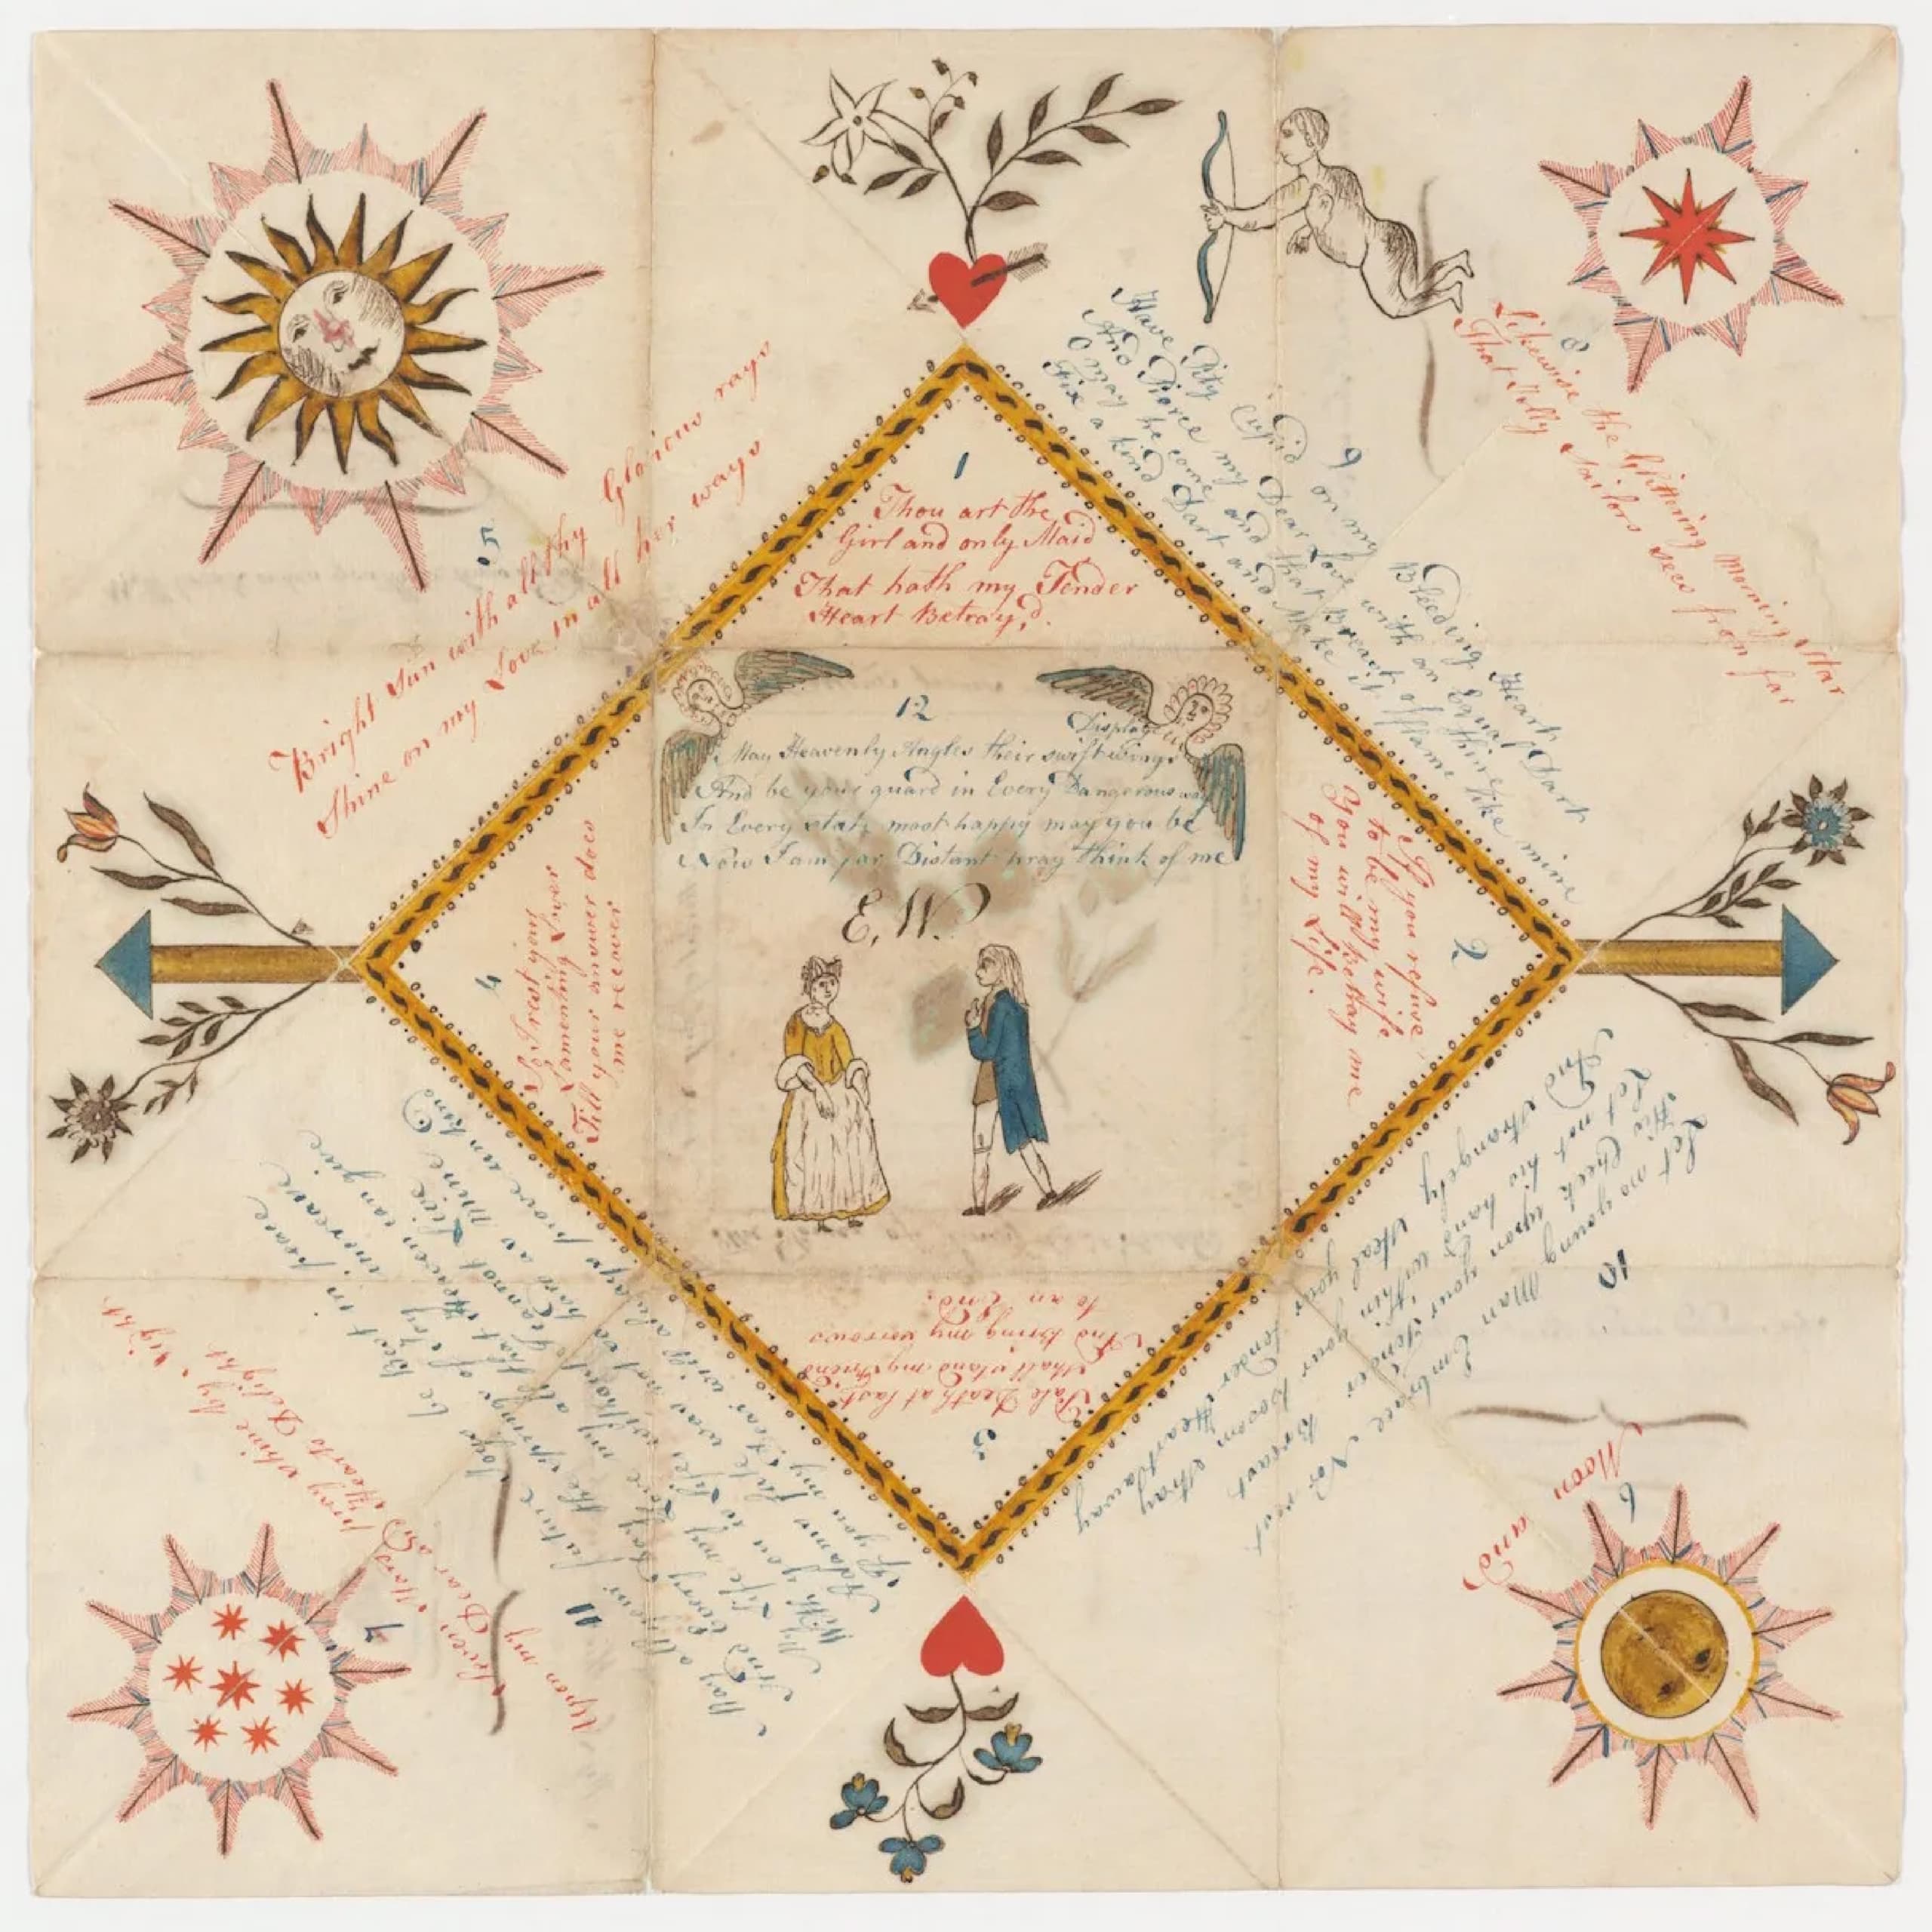 1
Thou art the
Girl and only Maid
That hath my Tender
Heart Betray,d.
2
If you refuse
to be my wife
You will bethay me
of my Life.
3
Pale Death at last
shall stand my friend
And bring my sorrows
to an End.
4
So I rest your
Lamenting Lover
Till your answer does
me recover
5
Bright Sun with all thy Glorious rays
Shine on my Love in all her ways
6
Moon and
7
Seven Stars pray shine by Night
Upon my Dear as Hearts Delight
8
Likewise the glittering Morning star
That Jolly Sailors sees from far
9
Have Pity Cupid on my Bleeding Heart
And Pierce my Dear Love with an Equal Dart
O may he come and that Breast of thine
Fix a kind Dart and Make it flame like mine
10
Let no young Man Embrace Nor rest
His Cheek upon your Tender Breast
Let not his hand within your bosom stray
And strangely steal your tender Heart away
11
If you my Dear will always prove unkind
Adams fate was not so hard as Mine
With you to Live without I cannot Live
My Life my Love my all that Heaven can give
And Every the springs of Joy increase
May all your future Days be in peace
12
Display
May Heavenly Angles their swift wings
And be your guard in Every Dangerous way
In Every state most happy may you be
Now I am far Distant pray think of me
E,W.